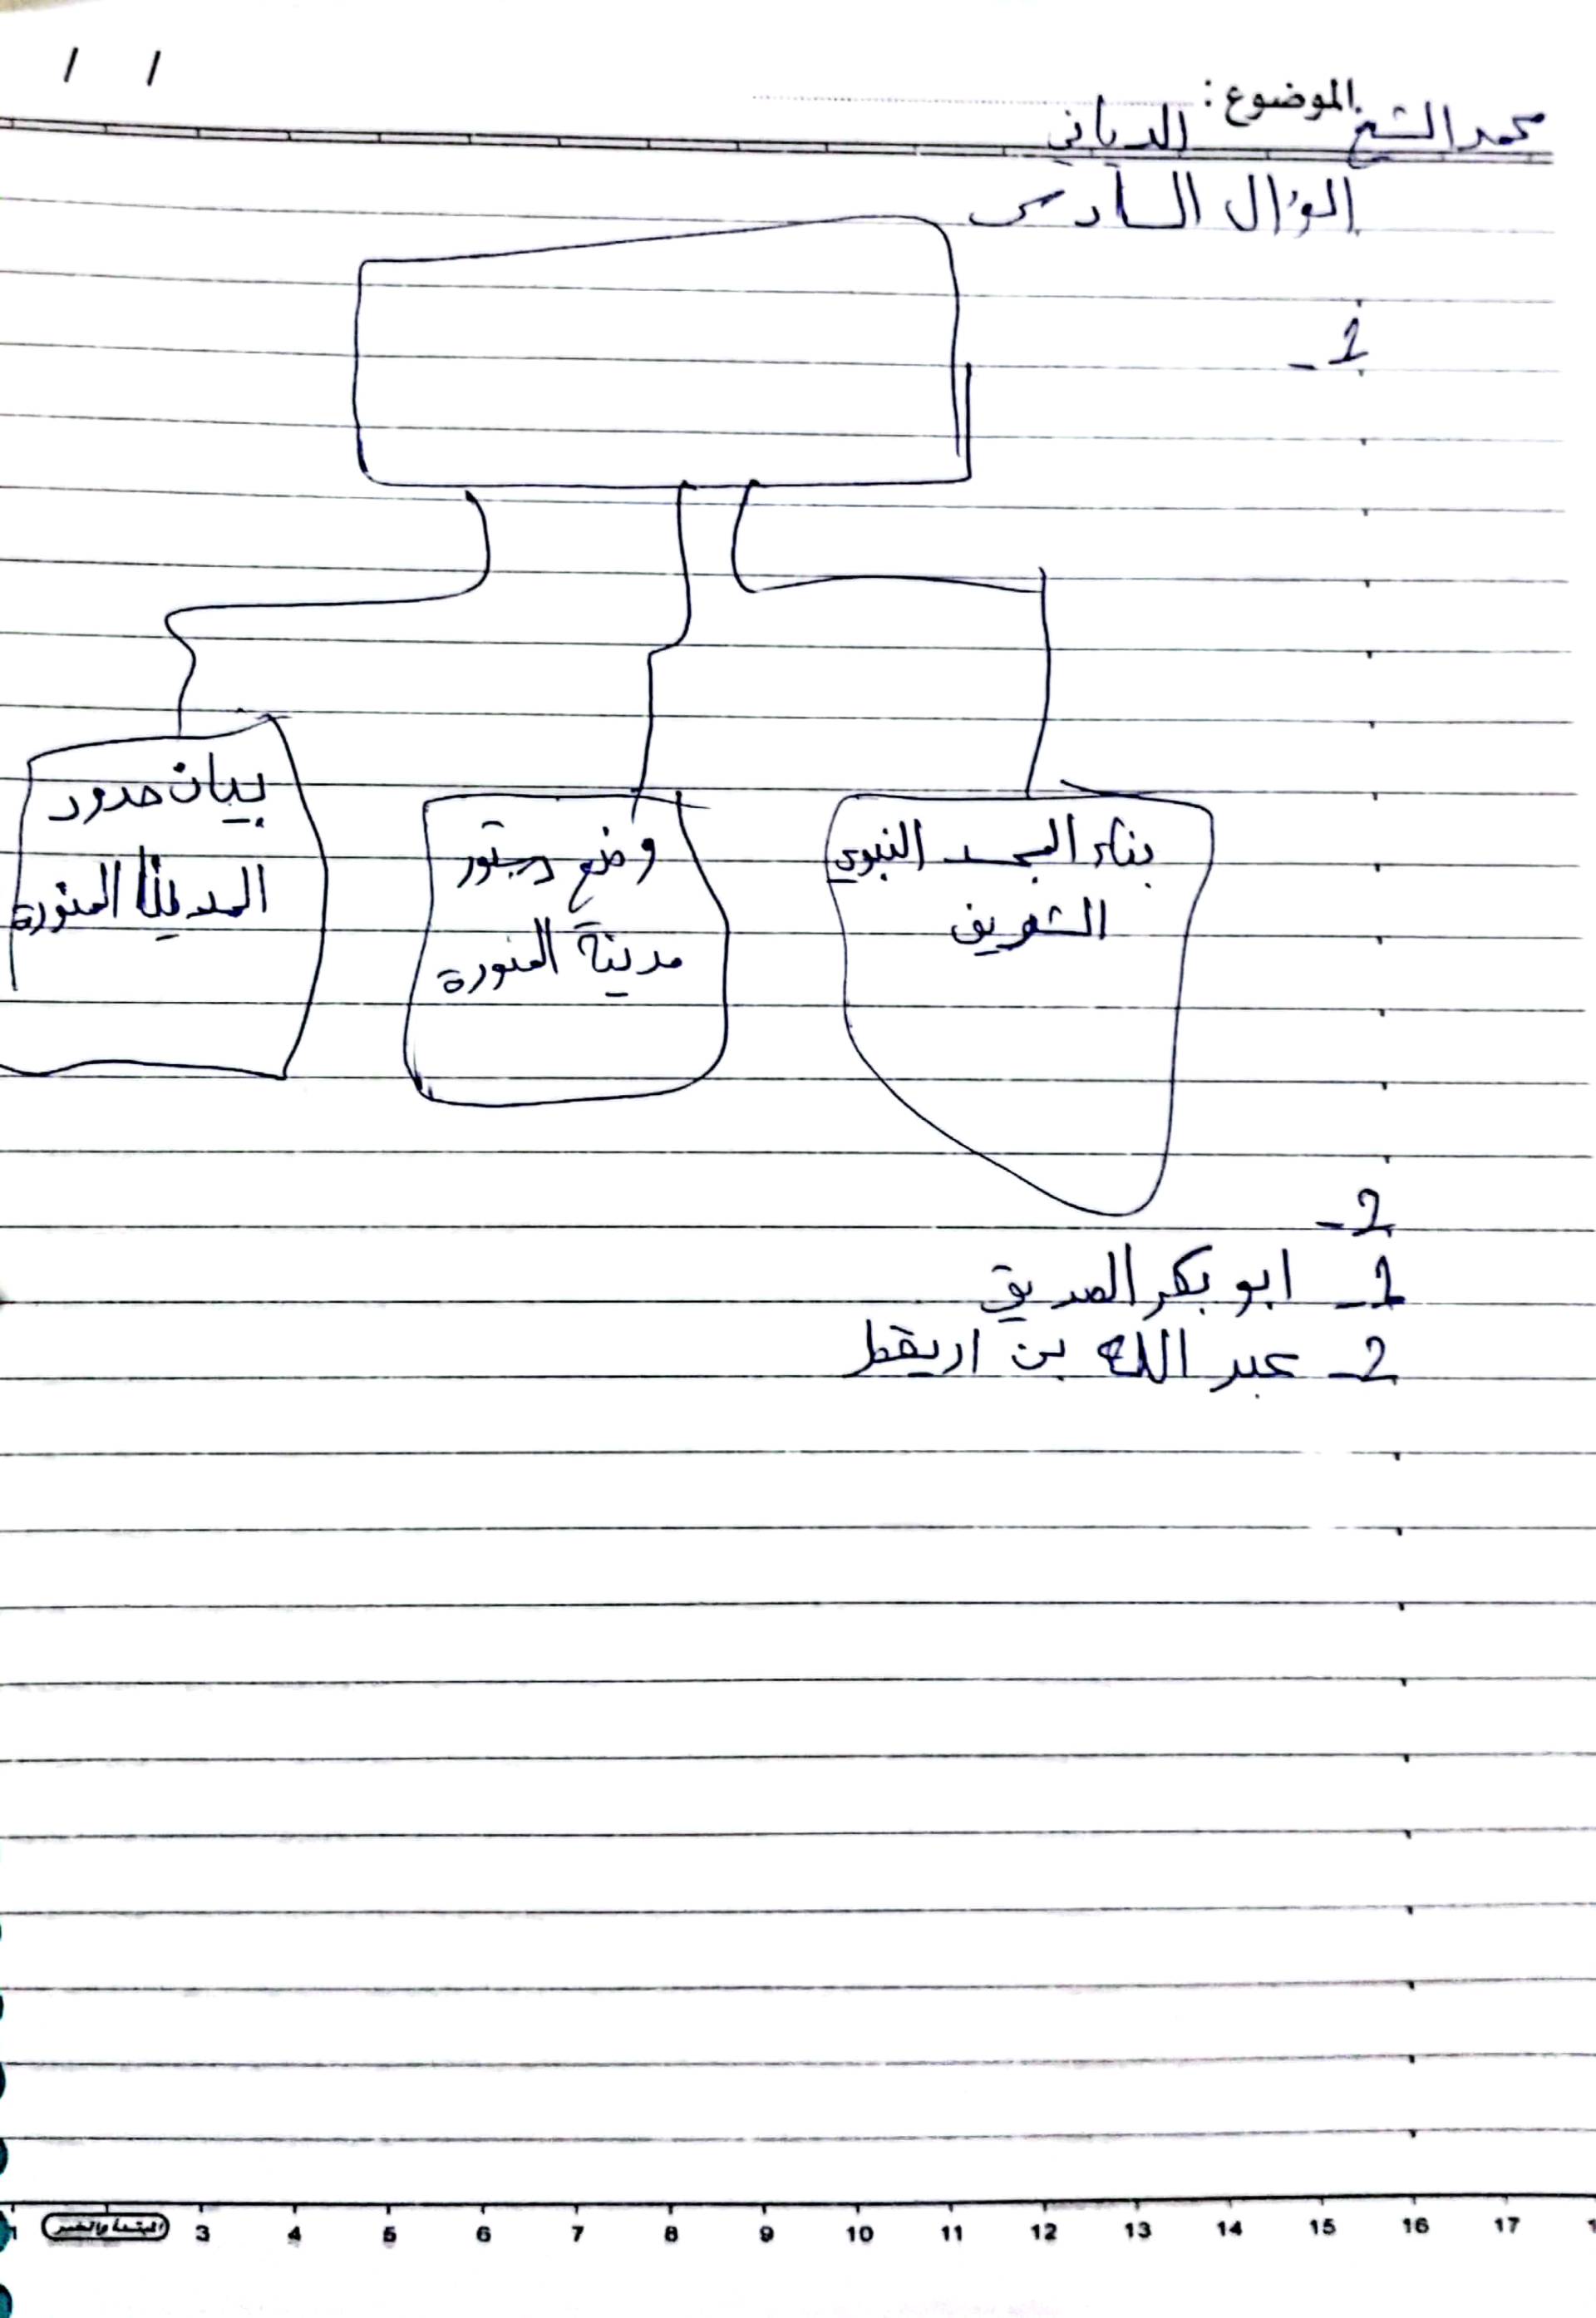 / /
الموضوع:
محمد الشيخ الديباني
السؤال السادس
1-
بناء المسجد النبوي
الشريف
وضع دستور
مدينة المنورة
بيان حدود
المدينة المنورة
2-
1- ابو بكر الصديق
2- عبد الله بن اريقط
3 4 5 6 7 8 9 10 11 12 13 14 15 16 17